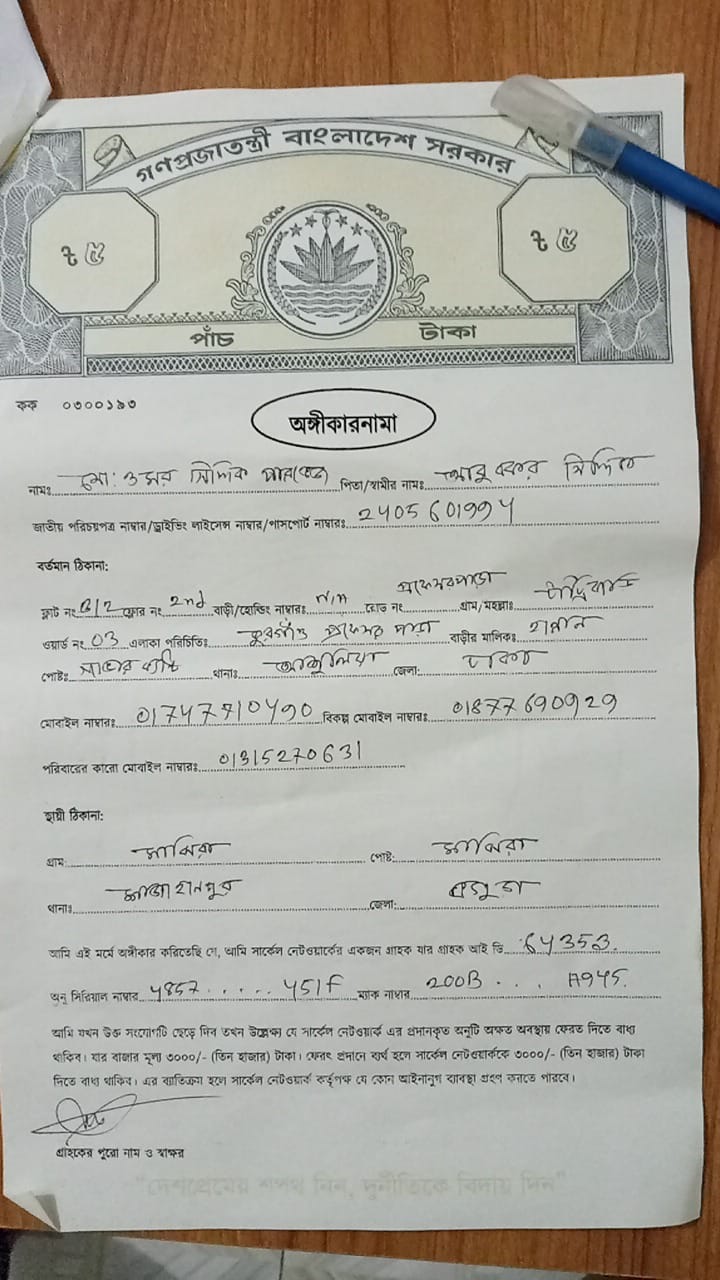 গণপ্রজাতন্ত্রী বাংলাদেশ সরকার
৳ ৫ ৳ ৫
পাঁচ টাকা
কক ০৩০০১৯৩
অঙ্গীকারনামা
নামঃ মো: ওমর সিদ্দিক পারভেজ পিতা/স্বামীর নামঃ আবু বকর সিদ্দিক
জাতীয় পরিচয়পত্র নাম্বার/ড্রাইভিং লাইসেন্স নাম্বার/পাসপোর্ট নাম্বারঃ 2405601994
বর্তমান ঠিকানা:
ফ্লাট নং B/2 ফ্লোর নং 2nd বাড়ী/হোল্ডিং নাম্বারঃ n/n রোড নং প্রফেসরপাড়া গ্রাম/মহল্লাঃ
ওয়ার্ড নং 03 এলাকা পরিচিতিঃ প্রফেসর পাড়া বাড়ীর মালিকঃ হান্নান
পোষ্টঃ থানাঃ আশুলিয়া জেলা: ঢাকা
মোবাইল নাম্বারঃ 01747710490 বিকল্প মোবাইল নাম্বারঃ 01877690929
পরিবারের কারো মোবাইল নাম্বারঃ 01315270631
স্থায়ী ঠিকানা:
গ্রাম: মাঝিরা পোষ্ট: মাঝিরা
থানাঃ শাজাহানপুর জেলা: বগুড়া
আমি এই মর্মে অঙ্গীকার করিতেছি যে, আমি সার্কেল নেটওয়ার্কের একজন গ্রাহক যার গ্রাহক আই ডি 64353.
অনু সিরিয়াল নাম্বার 4857..... 451F ম্যাক নাম্বার 200B... A945.
আমি যখন উক্ত সংযোগটি ছেড়ে দিব তখন উল্লেখ্য যে সার্কেল নেটওয়ার্ক এর প্রদানকৃত অনুটি অক্ষত অবস্থায় ফেরত দিতে বাধ্য
থাকিব। যার বাজার মূল্য ৩০০০/- (তিন হাজার) টাকা। ফেরৎ প্রদানে ব্যর্থ হলে সার্কেল নেটওয়ার্ককে ৩০০০/- (তিন হাজার) টাকা
দিতে বাধ্য থাকিব। এর ব্যাতিক্রম হলে সার্কেল নেটওয়ার্ক কর্তৃপক্ষ যে কোন আইনানুগ ব্যাবস্থা গ্রহণ করতে পারবে।
গ্রাহকের পুরো নাম ও স্বাক্ষর
"দেশপ্রেমের শপথ নিন, দুর্নীতিকে বিদায় দিন"